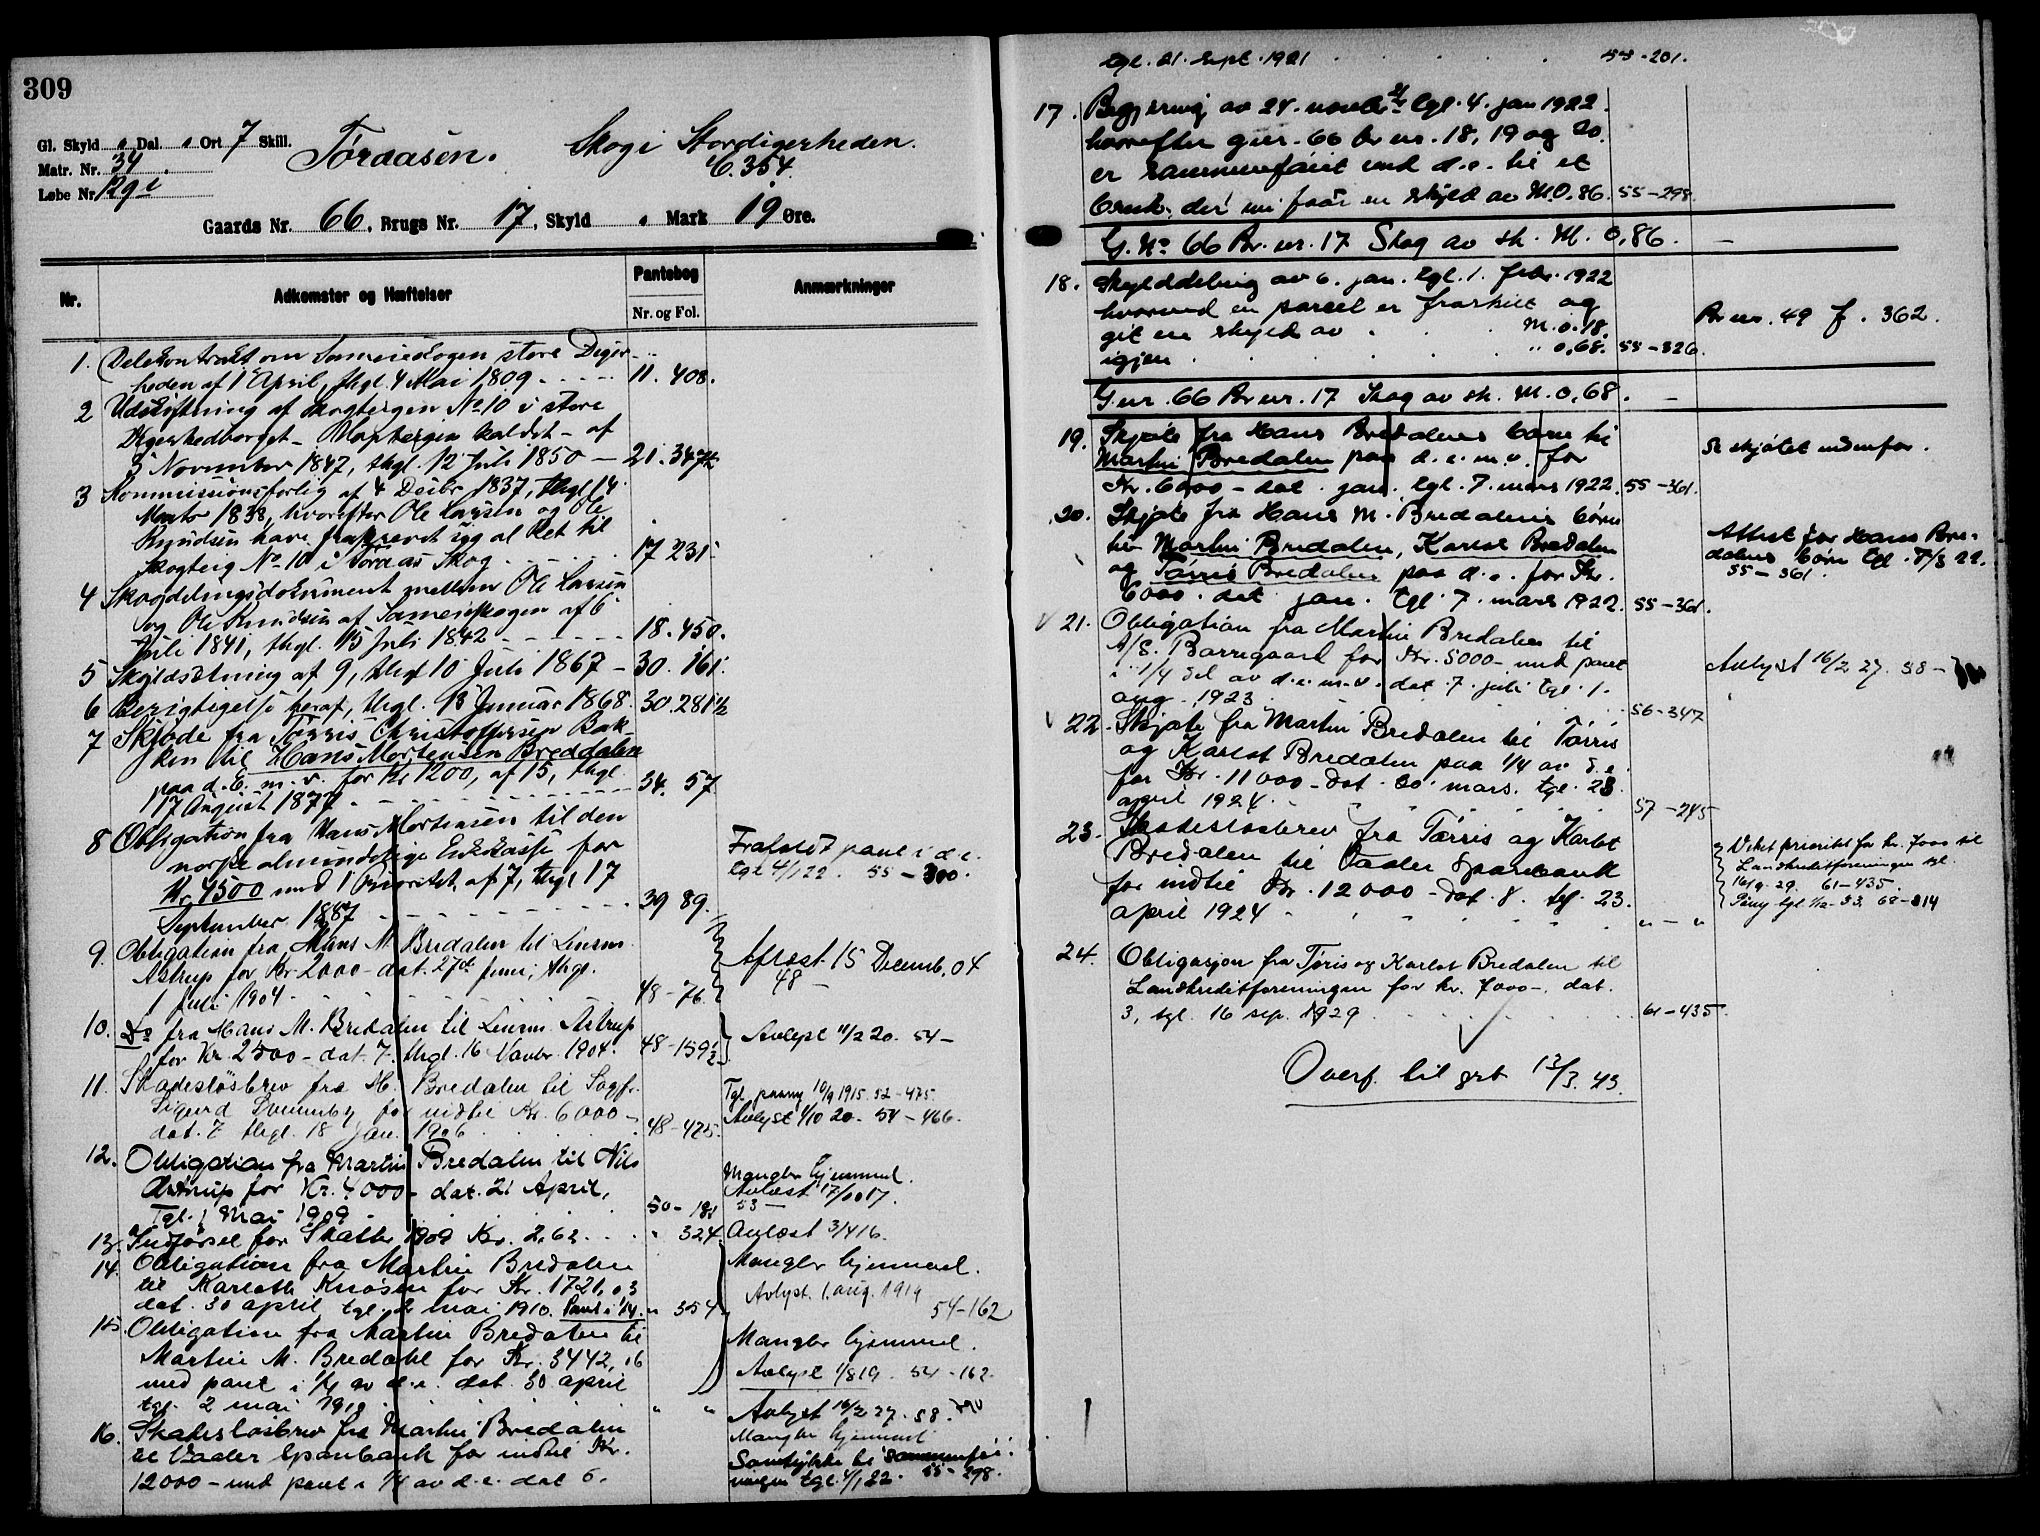 309
Gl. Skyld " Dal. " Ort 7 Skill.
Matr. Nr. 34
Løbe Nr. 129 i
Tøraasen. Skog i Stordigerheden.
C. 354.
Gaards Nr. 66, Brugs Nr. 17, Skyld " Mark 19 Øre.
Nr. Adkomster og Hæftelser Pantebog Anmærkninger
Nr. og Fol.
1. Delekontrakt om Sameieskogen store Diger-
heden af 1 April, thgl. 4 Mai 1809 11. 408.
2 Udskiftning af Skogteigen No 10 i store
Digerhedberget - kaldet - af
3 November 1847, thgl. 12 Juli 1850 — 21. 347½
3 Kommissionsforlig af 4 Decbr. 1837, thgl. 14
Marts 1838, hvorefter Ole Larsen og Ole
Knudsen have frasrevet sig al Ret til
Skogteig No 10 i Toraas Skog 17 231.
4 Skogdelingsdokument mellem Ole Larsen
og Ole Knudsen af Sameieskogen af 6
Juli 1841, thgl. 15 Juli 1842 18. 450.
5 Skyldsætning af 9, thgl 10 Juli 1867 — 30. 161.
6 Berigtigelse heraf, thgl. 13 Januar 1868. 30. 281½
7 Skjøde fra Tørris Christoffersen Bak-
ken til Hans Mortensen Breddalen
paa d. E. m. v. for Kr 1200, af 15, thgl.
17 August 1877 34. 57
8 Obligation fra Hans Mortensen til den
norske almindelige Enkekasse for
Kr 4500 med 1 Prioritet, af 7, thgl 17
September 1887 39 89.
Frafaldt pant i d.e.
tgl 4/1 22. 55 – 300.
9. Obligation fra Hans M. Bredalen til Lensm.
Astrup for Kr 2000 – dat. 27de Juni, thgl.
1 Juli 1904. 48 – 76.
Aflæst 15 Decemb. 04
48 –
10. Do fra Hans M. Bredalen til Lensm. Astrup
for Kr. 2500 – dat. 7. thgl. 16 Novbr. 1904. 48 – 159½
Avlyst 11/2 20. 54 –
11. Skadesløsbrev fra H. Bredalen til Sagf.
Sigurd for indtil Kr. 6000 –
dat. 7 thgl. 18 jan. 1906 48 – 425.
Tgl. paany 10/9 1915. 52 – 475.
Avlyst 1/10 20. 54 – 466.
12. Obligation fra Martin Bredalen til Nils
Astrup for Kr. 4000 – dat. 21 April,
Tgl. 1 Mai 1909 50 – 181
Mangler hjemmel.
Avlæst 17/10 17.
53 –
13. Indførsel for Skatter 1909 Kr. 2,62 " 324. Avlæst 3/4 16.
14. Obligation fra Martin Bredalen
til Kareth Knøsen for Kr. 1721,03
dat. 30 april tgl. 2 mai 1910. Pant i 1/4. " 354.
Mangler hjemmel.
Avlyst. 1. aug. 1919
54 – 162
15. Obligation fra Martin Bredalen til
Martin M. Bredahl for Kr. 3442,16
med pant i 1/4 av d.e. dat. 30 april
tgl. 2 mai 1910 " "
Mangler hjemmel.
Avlyst 1/8 19. 54 – 162.
16. Skadesløsbrev fra Martin Bredalen
til Vaaler Sparebank for indtil Kr.
12000 – med pant i 1/4 av d.e. dat 6.
Avlyst 16/2 27. 58.
Mangler hjemmel
Samtykke til sammenføi-
ningen tgl. 4/1 22. 55 – 298.
tgl. 21. sept. 1921 55 – 201.
17. Begjæring av 24. novbr. 21 tgl. 4. jan 1922.
hvorefter gnr. 66 br nr. 18, 19 og 20.
er sammenføiet med d.e. til et
bruk, der nu faar en skyld av M. 0.86. 55 – 298.
G. No 66 Br. nr. 17 Skog av sk. M. 0,86. –
18. Skylddeling av 6. jan. tgl. 1. febr. 1922
hvorved en parcel er fraskilt og
git en skyld av M. 0.18.
igjen " 0.68. 55 – 326.
Br nr. 49 f. 362.
G. nr. 66 Br nr. 17 Skog av sk. M. 0,68. –
19. Skjøte fra Hans Bredalens børn til
Martin Bredalen paa d.e.m.v. for
Kr. 6000 – dat. jan. tgl. 7. mars 1922. 55 – 361.
Se skjøtet nedenfor.
20. Skjøte fra Hans M. Bredalens børn
til Martin Bredalen, Karlot Bredalen
og Tørris Bredalen paa d.e. for Kr.
6000. dat jan. tgl. 7. mars 1922. 55 – 361.
Attest for Hans Bre-
dalens børn tgl. 7/3 22.
55 – 361.
21. Obligation fra Martin Bredalen til
A/S. Borregaard for Kr. 5000 – med pant
i 1/4 del av d.e.m.v. dat. 7. juli tgl. 1.
aug. 1923 56 – 347
Avlyst 16/2 27. 58 –
22. Skjøte fra Martin Bredalen til Tørris
og Karlot Bredalen paa 1/4 av d.e.
for Kr. 11000 – dat. 20. mars. tgl. 23
april 1924. 57 – 245
23. Skadesløsbrev fra Tørris og Karlot
Bredalen til Vaaler Sparebank
for indtil Kr. 12000 – dat. 8. tgl. 23.
april 1924 " – "
Veket prioritet for kr. 7000 til
Landkreditforeningen tgl.
16/9. 29. 61 – 435.
Påny tgl. 1/12 – 33. 68 – 314
24. Obligasjon fra Tøris og Karlot Bredalen til
Landkreditforeningen for kr. 7000 –. dat.
3, tgl. 16 sep. 1929 61 – 435.
Overf. til grb 13/3. 43.